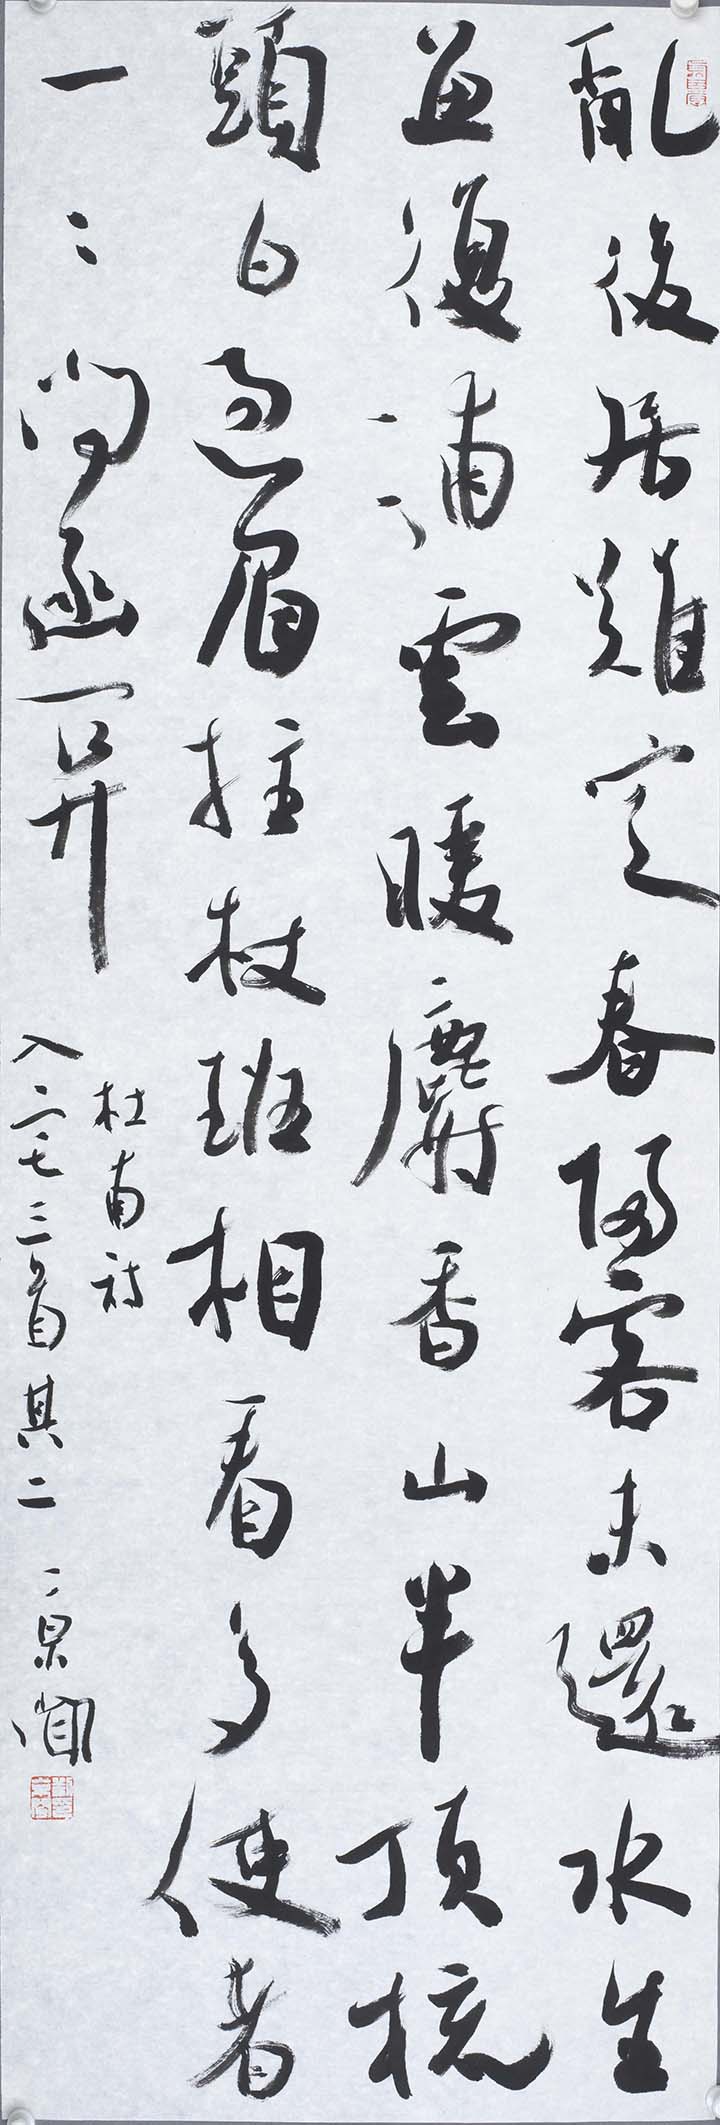 亂後居難定春歸客未還水生
魚復浦雲暖麝香山半頂梳
頭白過眉拄杖班相看多使者
一〻問函關
杜甫詩
入宅三首其二